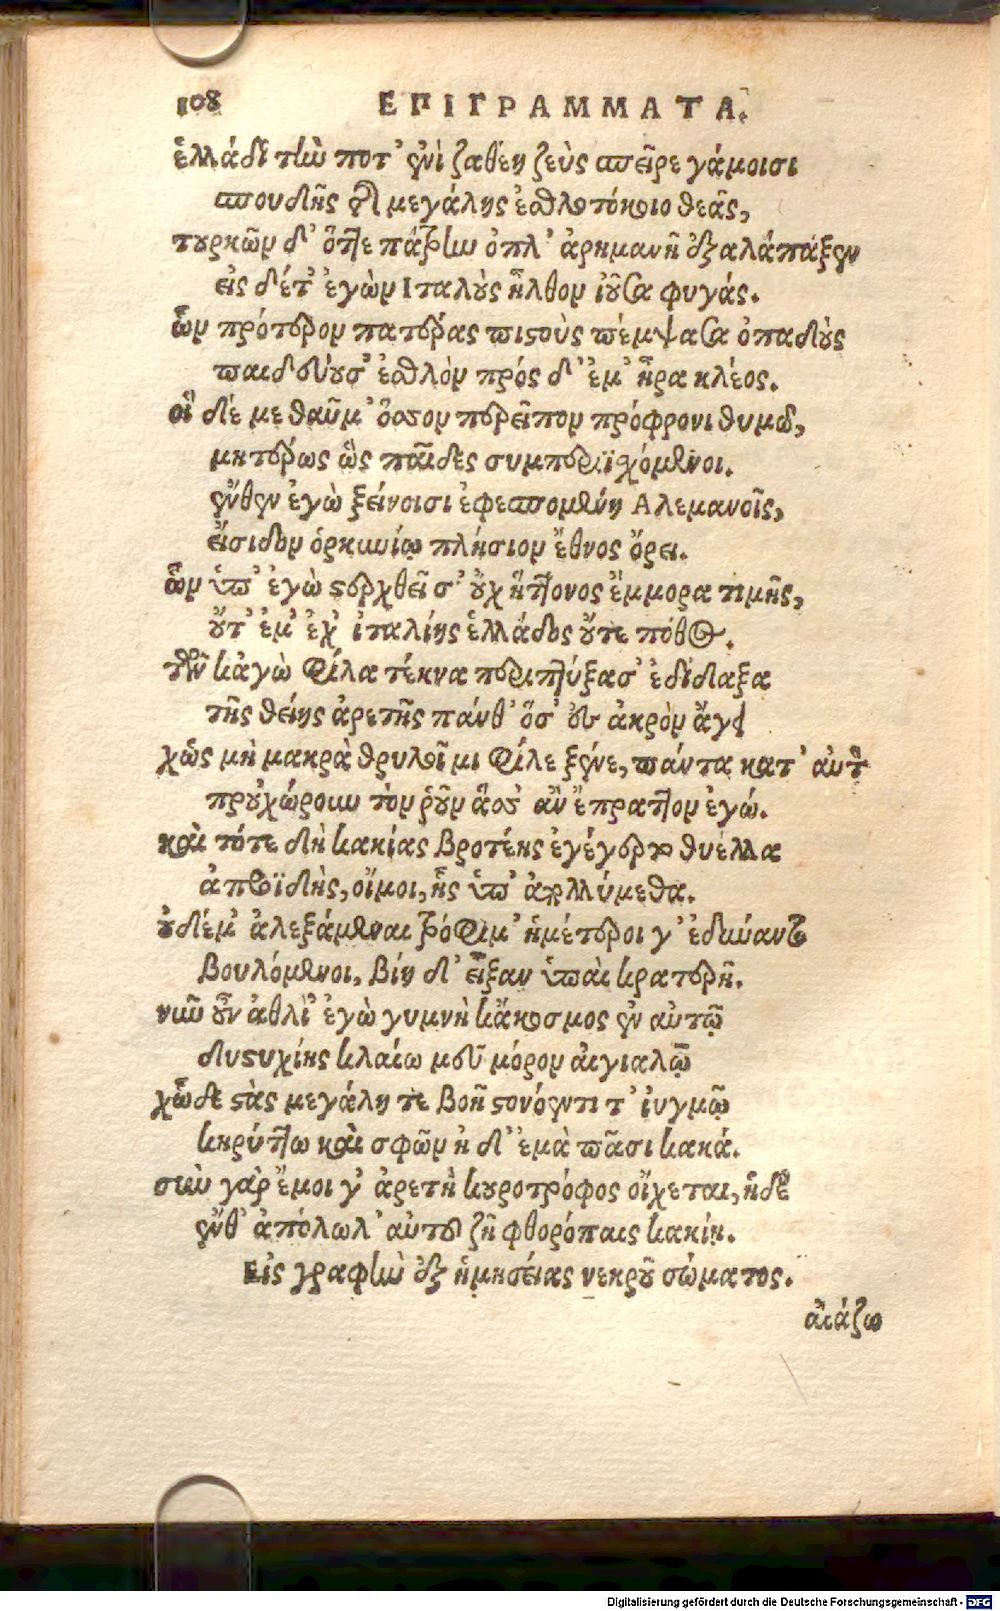 108 ΕΠΙΓΡΑΜΜΑΤΑ.
ἑλλάδι τὴν ποτ' ἐνὶ ζαθέῃ ζεὺς σπεῖρε γάμοισι
σπουδῆς ἐκ μεγάλης ἐσθλοτόκοιο θεᾶς,
τουρκῶν δ' ὅττε πάτρην ὁπλ' ἀρημανῆ ἐξαλάπαξεν
εἰς δέ τ' ἐγὼν Ιταλοὺς ἦλθον ἰοῦσα φυγάς.
ὧν πρότερον πατέρας πιστοὺς πέμψασα ὀπαδοὺς
παιδεύουσ' ἐσθλὸν πρός δ' ἐμ' ἦρα κλέος.
οἳ δέ με θαῦμ' ὅσσον περιεῖπον πρόφρονι θυμῷ,
μητέρως ὣς παῖδες συμπεριϊχόμενοι.
ἔνθεν ἐγὼ ξείνοισι ἐφεσπομένη Αλεμανοῖς,
εἴσιδον ὁρκυνίῳ πλήσιον ἔθνος ὄρει.
ὧν ὑπ' ἐγὼ στερχθεῖσ' οὐχ ἥττονος ἔμμορα τιμῆς,
οὔτ' ἐμ' ἐχ' ἰταλίης ἑλλάδος οὔτε πόθος.
τῶν κἀγὼ φίλα τέκνα περιπτύξασ' ἐδίδαξα
τῆς θείης ἀρετῆς πάνθ' ὅσ' ἐς ἀκρὸν ἄγει
χὣς μὴ μακρὰ θρυλοῖμι φίλε ξένε, πάντα κατ' αὐτοὺς
προὐχώρουν τὸν ῥοῦν ἅσσ' ἂν ἔπραττον ἐγώ.
καὶ τότε δὴ κακίας βροτέης ἐγέγερτο θυέλλα
ἀπευϊδὴς, οἴμοι, ἧς ὑπ' ἀπολλύμεθα.
οὐδέ μ' ἀλεξάμεναι τρόφιμ' ἡμέτεροι γ' ἐδύναντο
βουλόμενοι, βίῃ δ' εἶξαν ὑπαὶ κρατερῇ.
νῦν οὖν ἀθλί' ἐγὼ γυμνὴ κἄκοσμος ἐν αὐτῷ
δυστυχίης κλαίω μεῦ μόρον αἰγιαλῷ
χὧδε στὰς μεγάλῃ τε βοῇ στονόεντι τ' ἰυγμῷ
κηρύττω καὶ σφῶν ἠ δ' ἐμὰ πᾶσι κακά.
σὺν γὰρ ἔμοι γ' ἀρετὴ κουροτρόφος οἴχεται, ἠδὲ
ἔνθ' ἀπόλωλ' αὐτοῦ ζῇ φθορόπαις κακίη.
Εἰς γραφὴν ἐξ ἡμησείας νεκροῦ σώματος.
αἰάζω
Digitalisierung gefördert durch die Deutsche Forschungsgemeinschaft - DFG